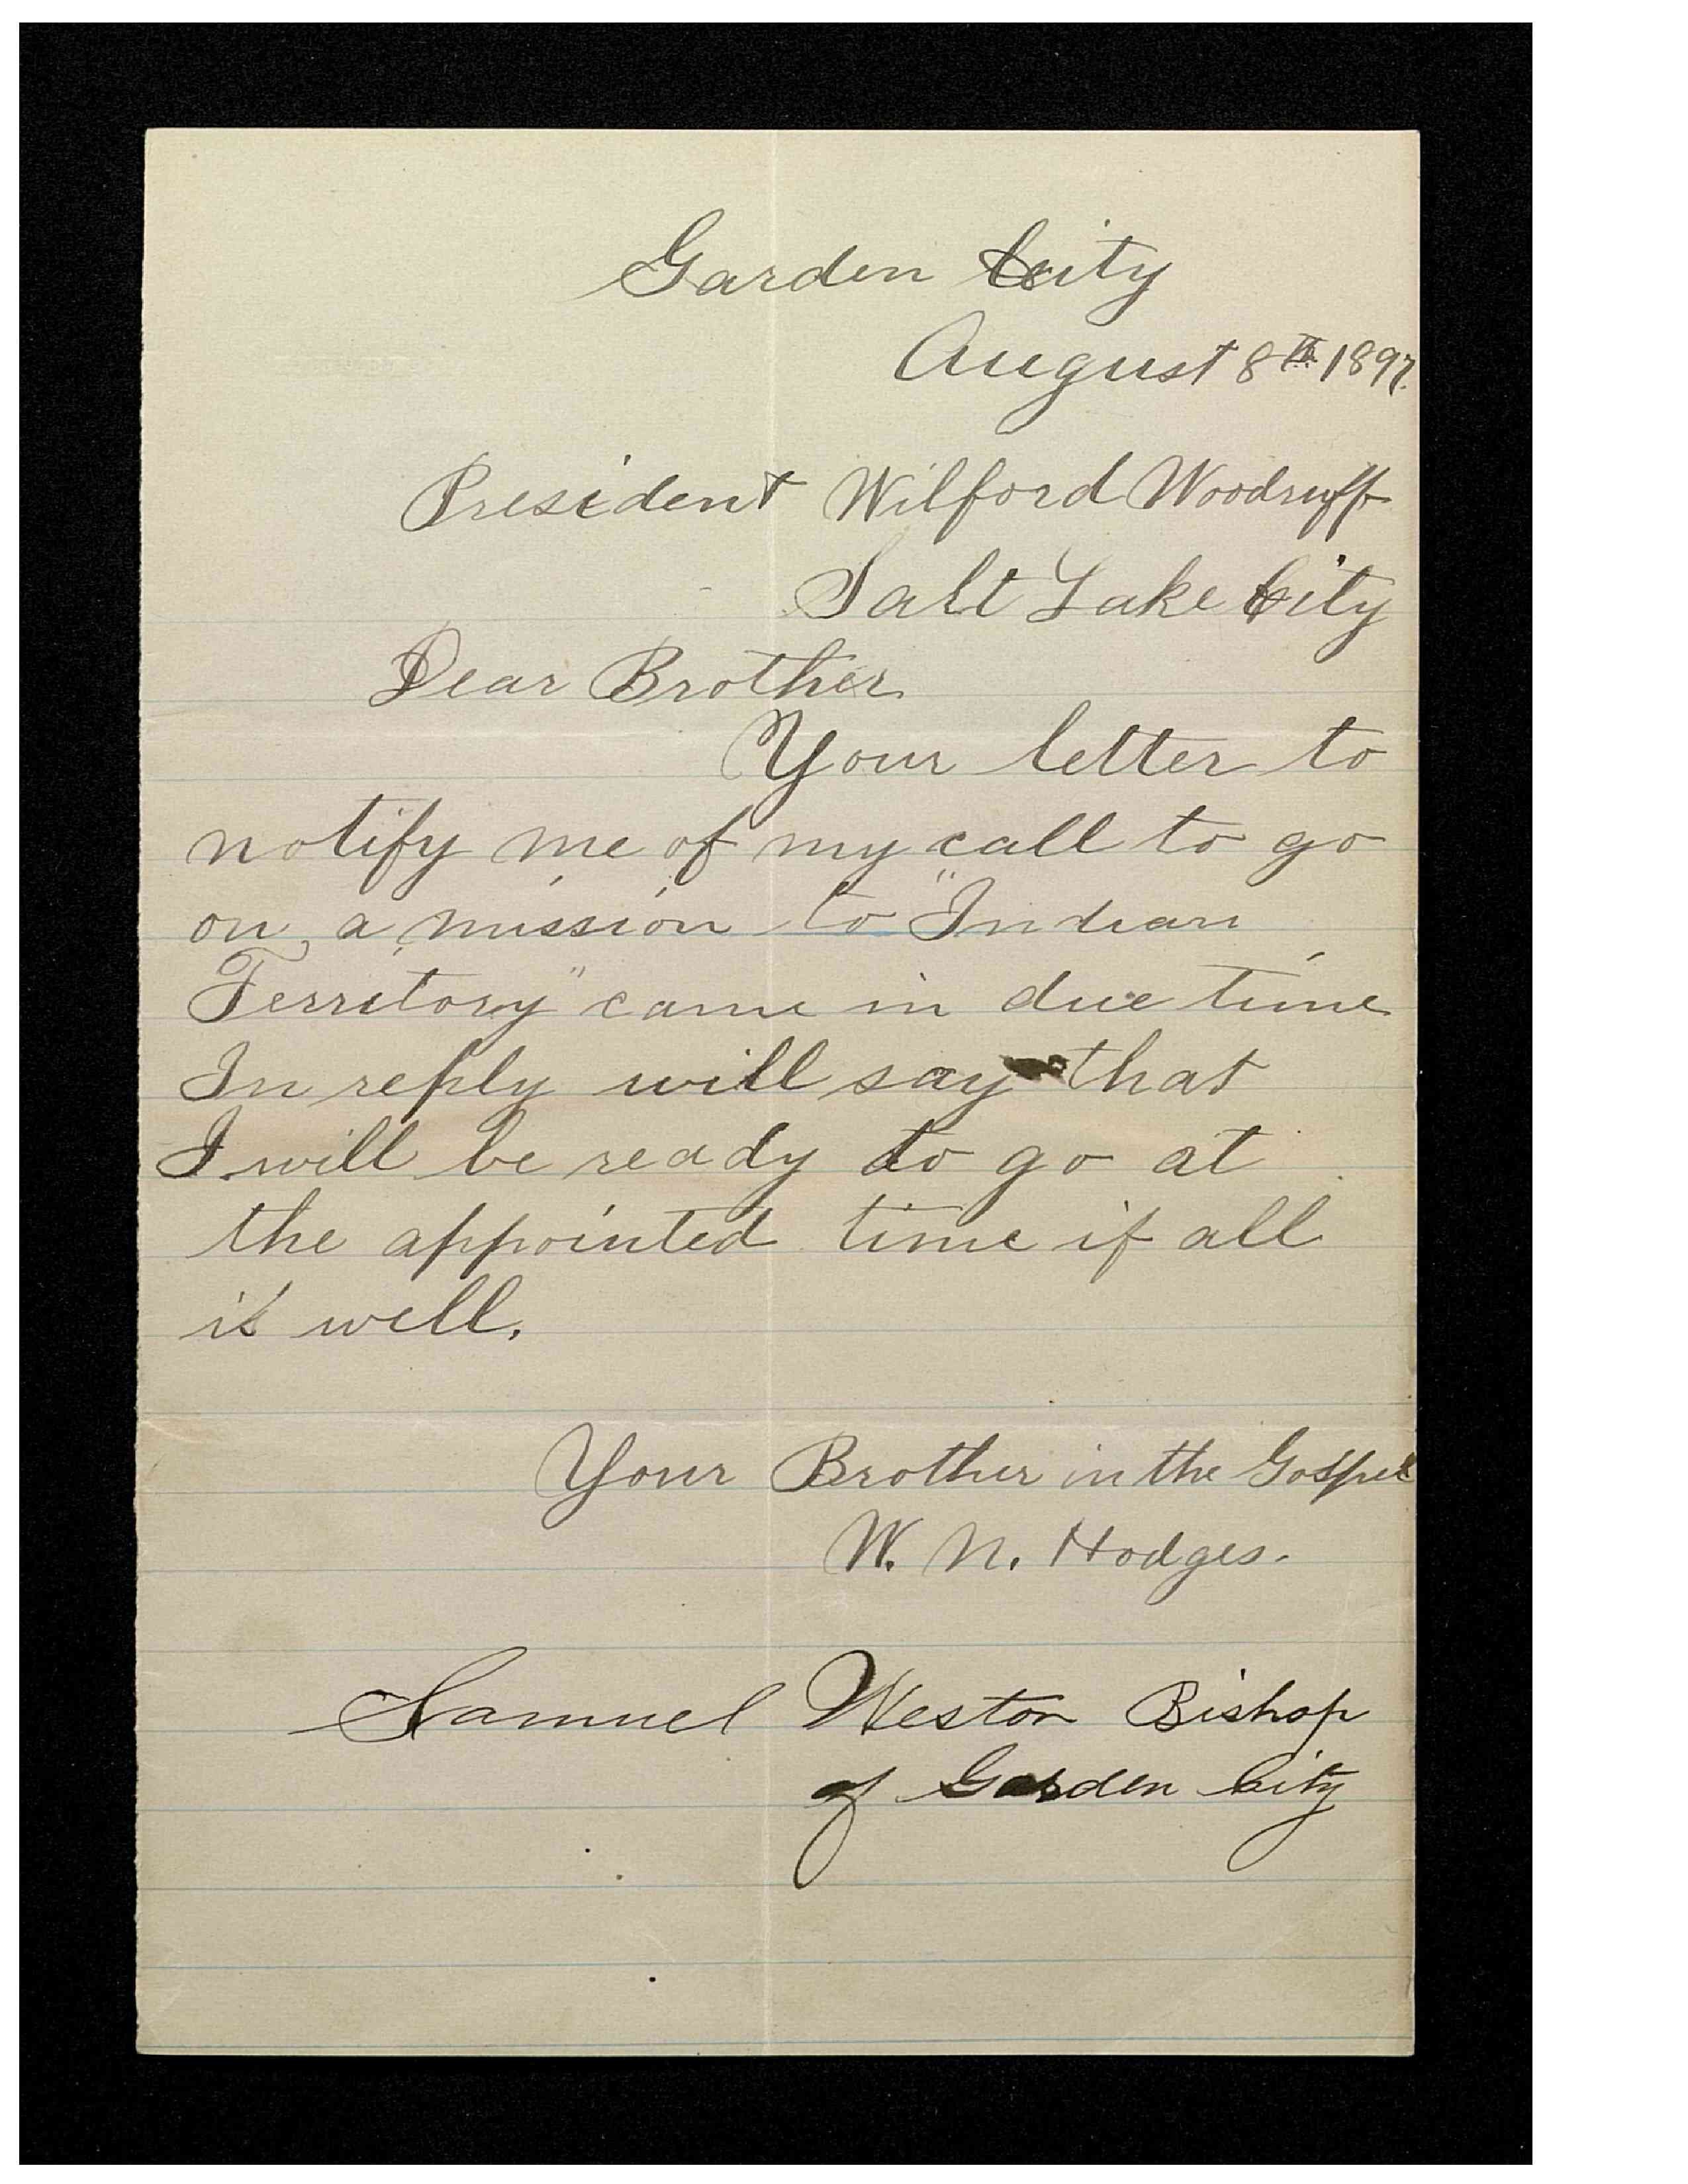 Garden City
August 8th 1897.
President Wilford Woodruff
Salt Lake City
Dear Brother
Your letter to
notify me of my call to go
on a mission to "Indian
Territory" came in due time
In reply will say that
I will be ready to go at
the appointed time if all
is well.
Your Brother in the Gospel
W. N. Hodges.
Samuel Weston Bishop
of Garden City